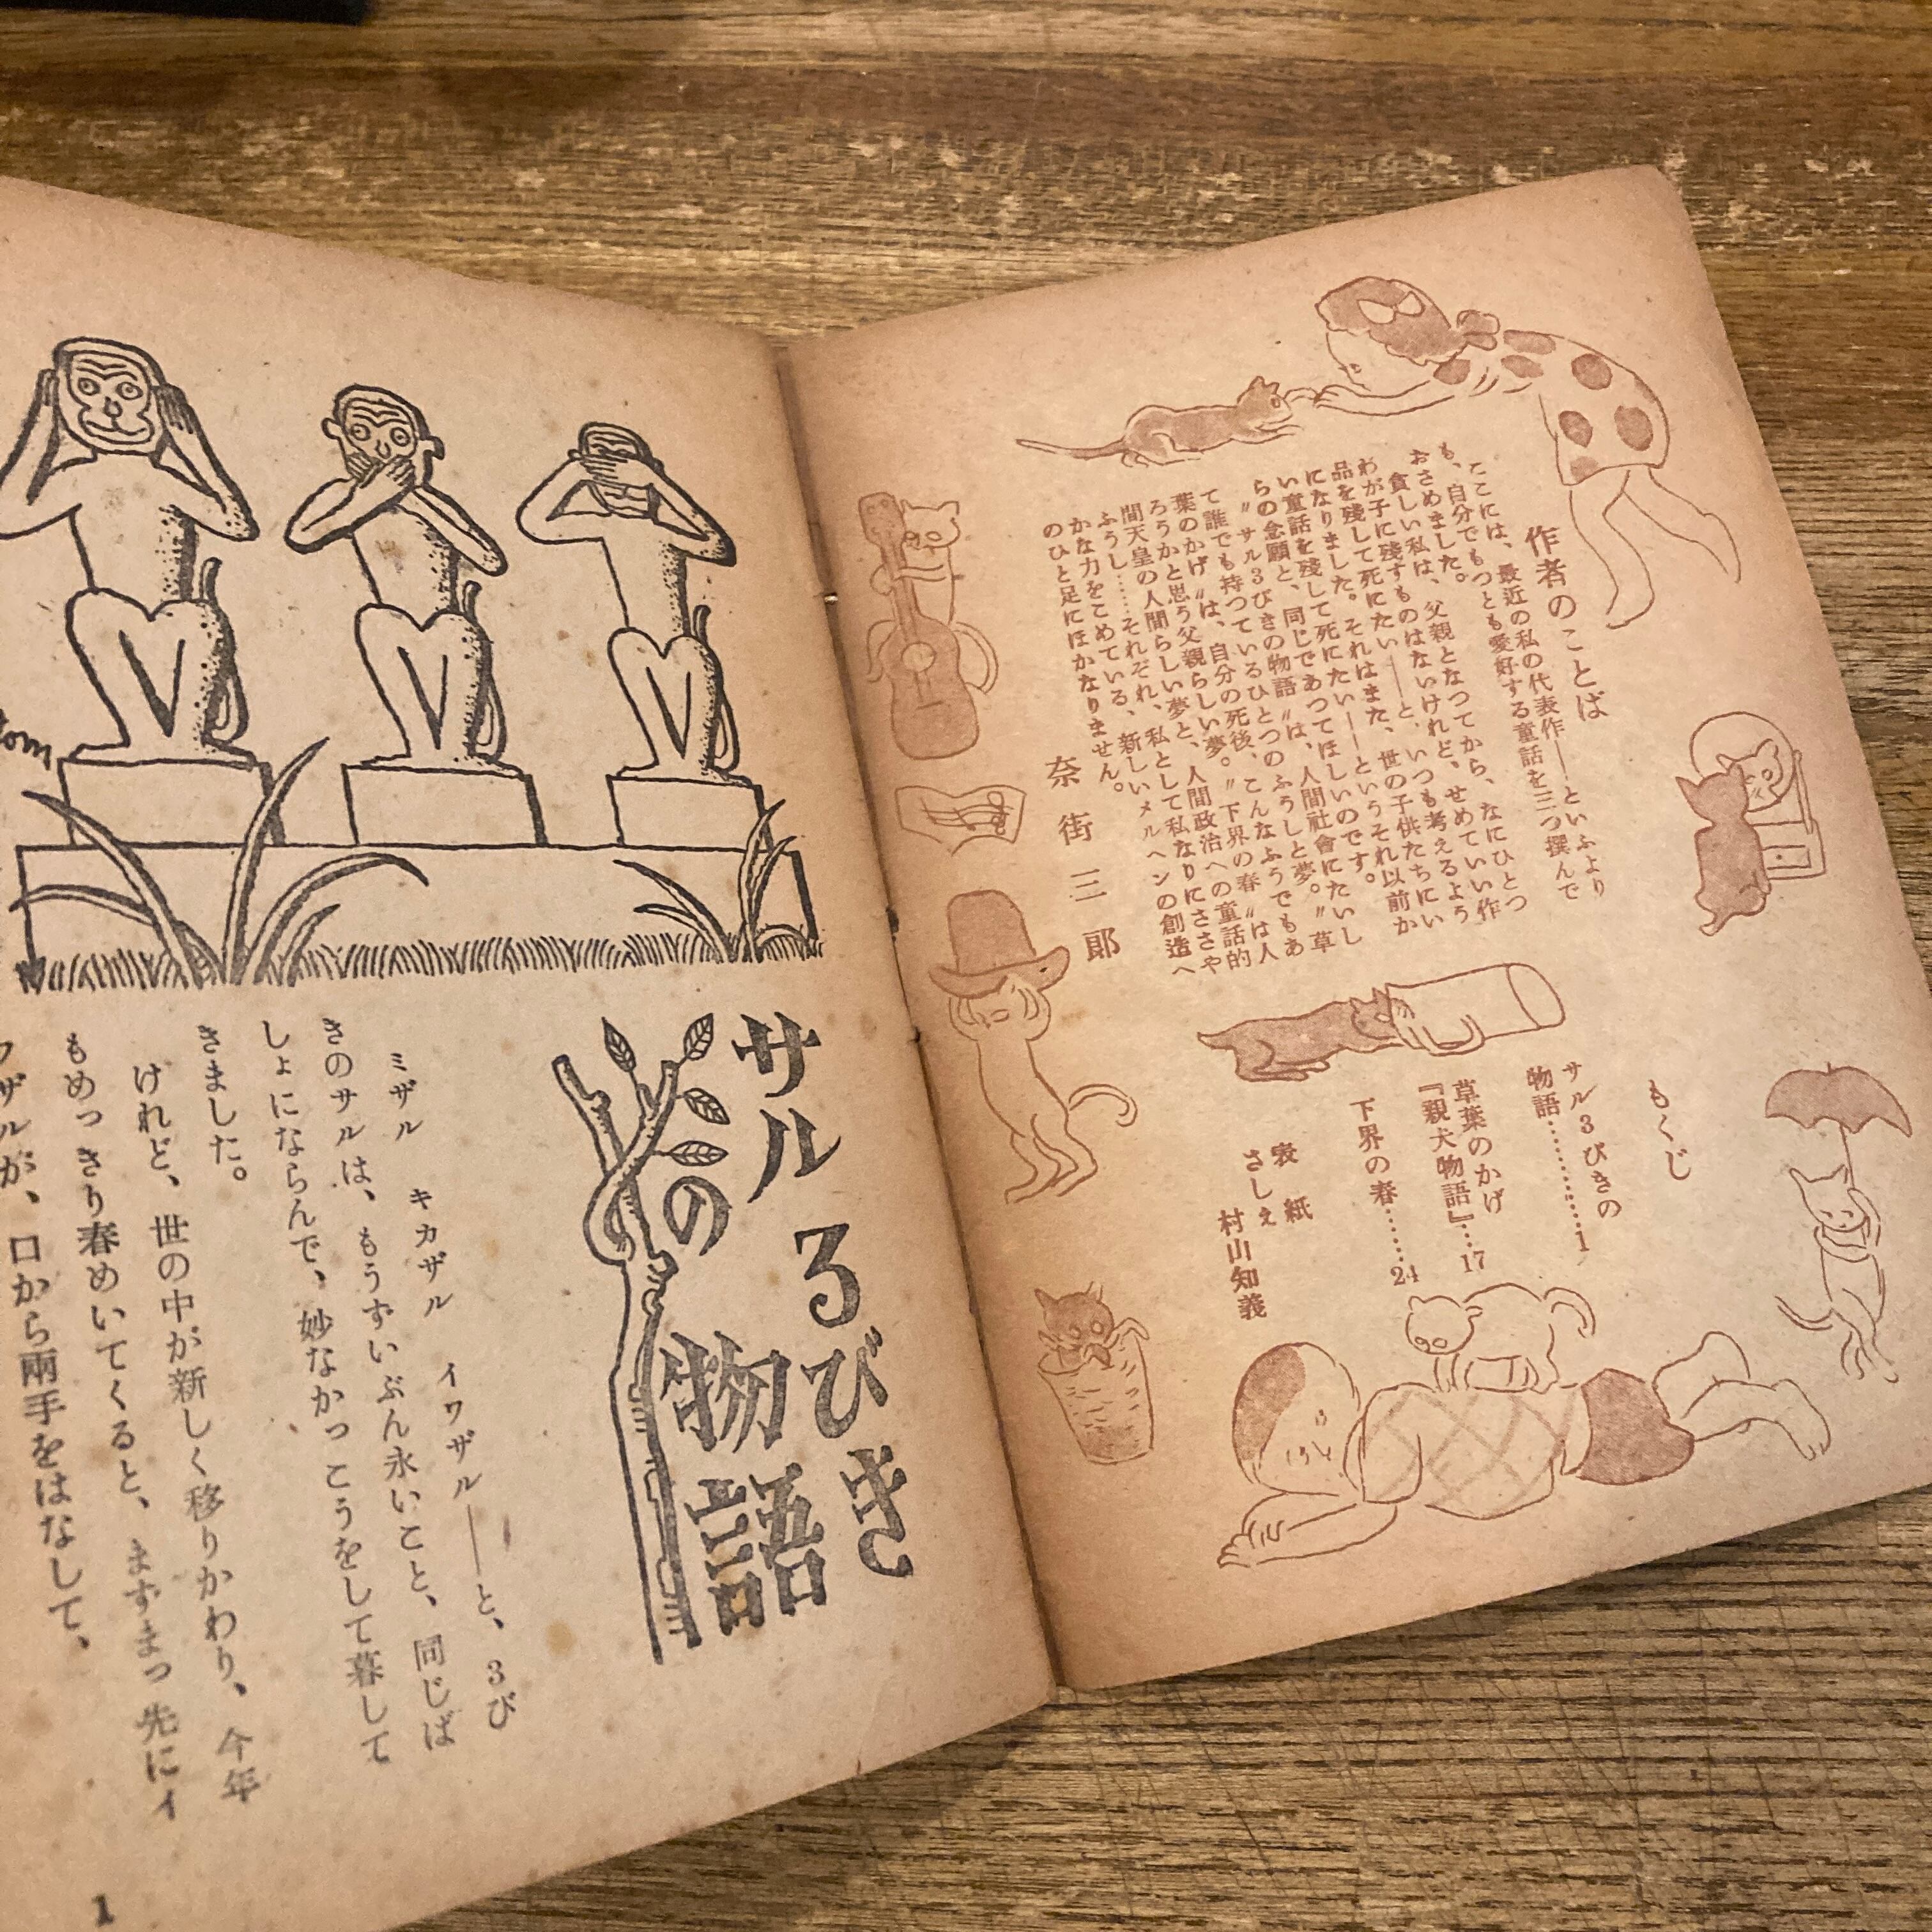 作者のことば
ここには、最近の私の代表作――といふより
も、自分でもつとも愛好する童話を三つ撰んで
おさめました。
貧しい私は、父親となつてから、なにひとつ
わが子に残すものはないけれど、せめていい作
品を残して死にたい――と、いつも考えるよう
になりました。それはまた、世の子供たちにい
い童話を残して死にたい――というそれ以前か
らの念願と、同じであつてほしいのです。
〝サル3びきの物語〟は、人間社會にたいし
て誰でも持つているひとつのふうしと夢。〝草
葉のかげ〟は、自分の死後、こんなふうでもあ
ろうかと思う父親らしい夢。〝下界の春〟は人
間天皇の人間らしい夢と、人間政治への童話的
ふうし……それぞれ、私として私なりにささや
かな力をこめている、新しいメルヘンの創造へ
のひと足にほかなりません。
奈街三郎
もくじ
サル3びきの
物語…………1
草葉のかげ
『親犬物語』…17
下界の春……24
表紙
さしえ
村山知義
サル3びき
の物語
ミザル キカザル イワザル――と、3び
きのサルは、もうずいぶん永いこと、同じば
しょにならんで、妙なかっこうをして暮して
きました。
けれど、世の中が新しく移りかわり、今年
もめっきり春めいてくると、まずまっ先にイ
ワザルが、口から兩手をはなして、
tom
1